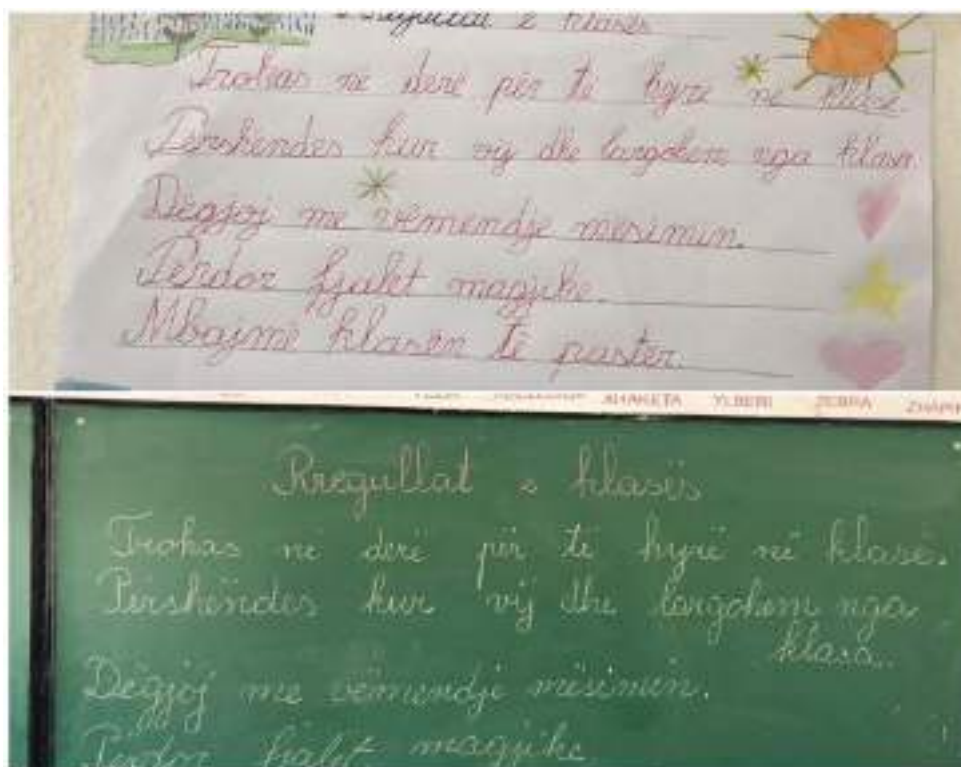 Rregullat e klasës
Trokas në derë për të hyrë në klasë.
Pershendes kur vij dhe largohem nga klasa.
Dëgjoj me vëmendje mesimin.
Përdor fjalët magjike.
Mbajmë klasën të pastër.
AMAKETA YLBERI ZEBRA
Rregullat e klasës
Trokas në derë për të hyrë në klasë.
Përshëndes kur vij dhe largohem nga
klasa.
Dëgjoj me vëmendje mësimin.
Përdor fjalët magjike